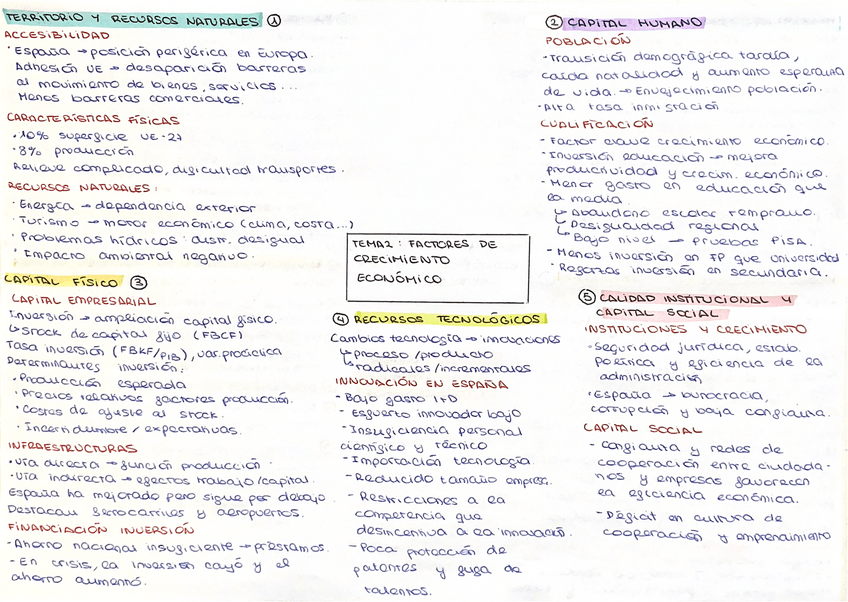 TERRITORIO Y RECURSOS NATURALES ①
ACCESIBILIDAD
· España → posición periférica en Europa.
Adhesión UE → desaparición barreras
al movimiento de bienes, servicios...
Menos barreras comerciales.
CARACTERÍSTICAS FÍSICAS
· 10% superficie UE-27
· 8% producción
Relieve complicado, dificultad transportes.
RECURSOS NATURALES:
· Energía → dependencia exterior
· Turismo → motor económico (clima, costa...)
· Problemas hídricos: distr. desigual
· Impacto ambiental negativo.
② CAPITAL HUMANO
POBLACIÓN
· Transición demográfica tardía,
caída natalidad y aumento esperanza
de vida. → Envejecimiento población.
· Alta tasa inmigración
CUALIFICACIÓN
- Factor clave crecimiento económico.
- Inversión educación → mejora
productividad y crecim. económico.
- Menor gasto en educación que
la media.
↳ Abandono escolar temprano.
↳ Desigualdad regional
↳ Bajo nivel → pruebas PISA.
- Menos inversión en FP que universidad
- Regazos inversión en secundaria.
TEMA2: FACTORES DE
CRECIMIENTO
ECONÓMICO
CAPITAL FÍSICO ③
CAPITAL EMPRESARIAL
Inversión → ampliación capital físico.
↳ stock de capital fijo (FBCF)
Tasa inversión (FBKF/PIB), var. procíclica
Determinantes inversión:
· Producción esperada
· Precios relativos factores producción.
· Costes de ajuste al stock.
· Incertidumbre / expectativas.
INFRAESTRUCTURAS
· Vía directa → función producción
· Vía indirecta → efectos trabajo/capital.
España ha mejorado pero sigue por debajo.
Destacan ferrocarriles y aeropuertos.
FINANCIACIÓN INVERSIÓN
- Ahorro nacional insuficiente → préstamos.
- En crisis, la inversión cayó y el
ahorro aumentó.
④ RECURSOS TECNOLÓGICOS
Cambios tecnología → innovaciones
↳ proceso/producto
↳ radicales/incrementales
INNOVACIÓN EN ESPAÑA
- Bajo gasto I+D
- Esfuerzo innovador bajo
- Insuficiencia personal
científico y técnico
- Importación tecnología.
- Reducido tamaño empres.
- Restricciones a la
competencia que
desincentiva a la innovación.
- Poca protección de
patentes y fuga de
talentos.
⑤ CALIDAD INSTITUCIONAL Y
CAPITAL SOCIAL
INSTITUCIONES Y CRECIMIENTO
· Seguridad jurídica, estab.
política y eficiencia de la
administración
· España → burocracia,
corrupción y baja confianza.
CAPITAL SOCIAL
- Confianza y redes de
cooperación entre ciudada-
nos y empresas favorecen
la eficiencia económica.
- Déficit en cultura de
cooperación y emprendimiento